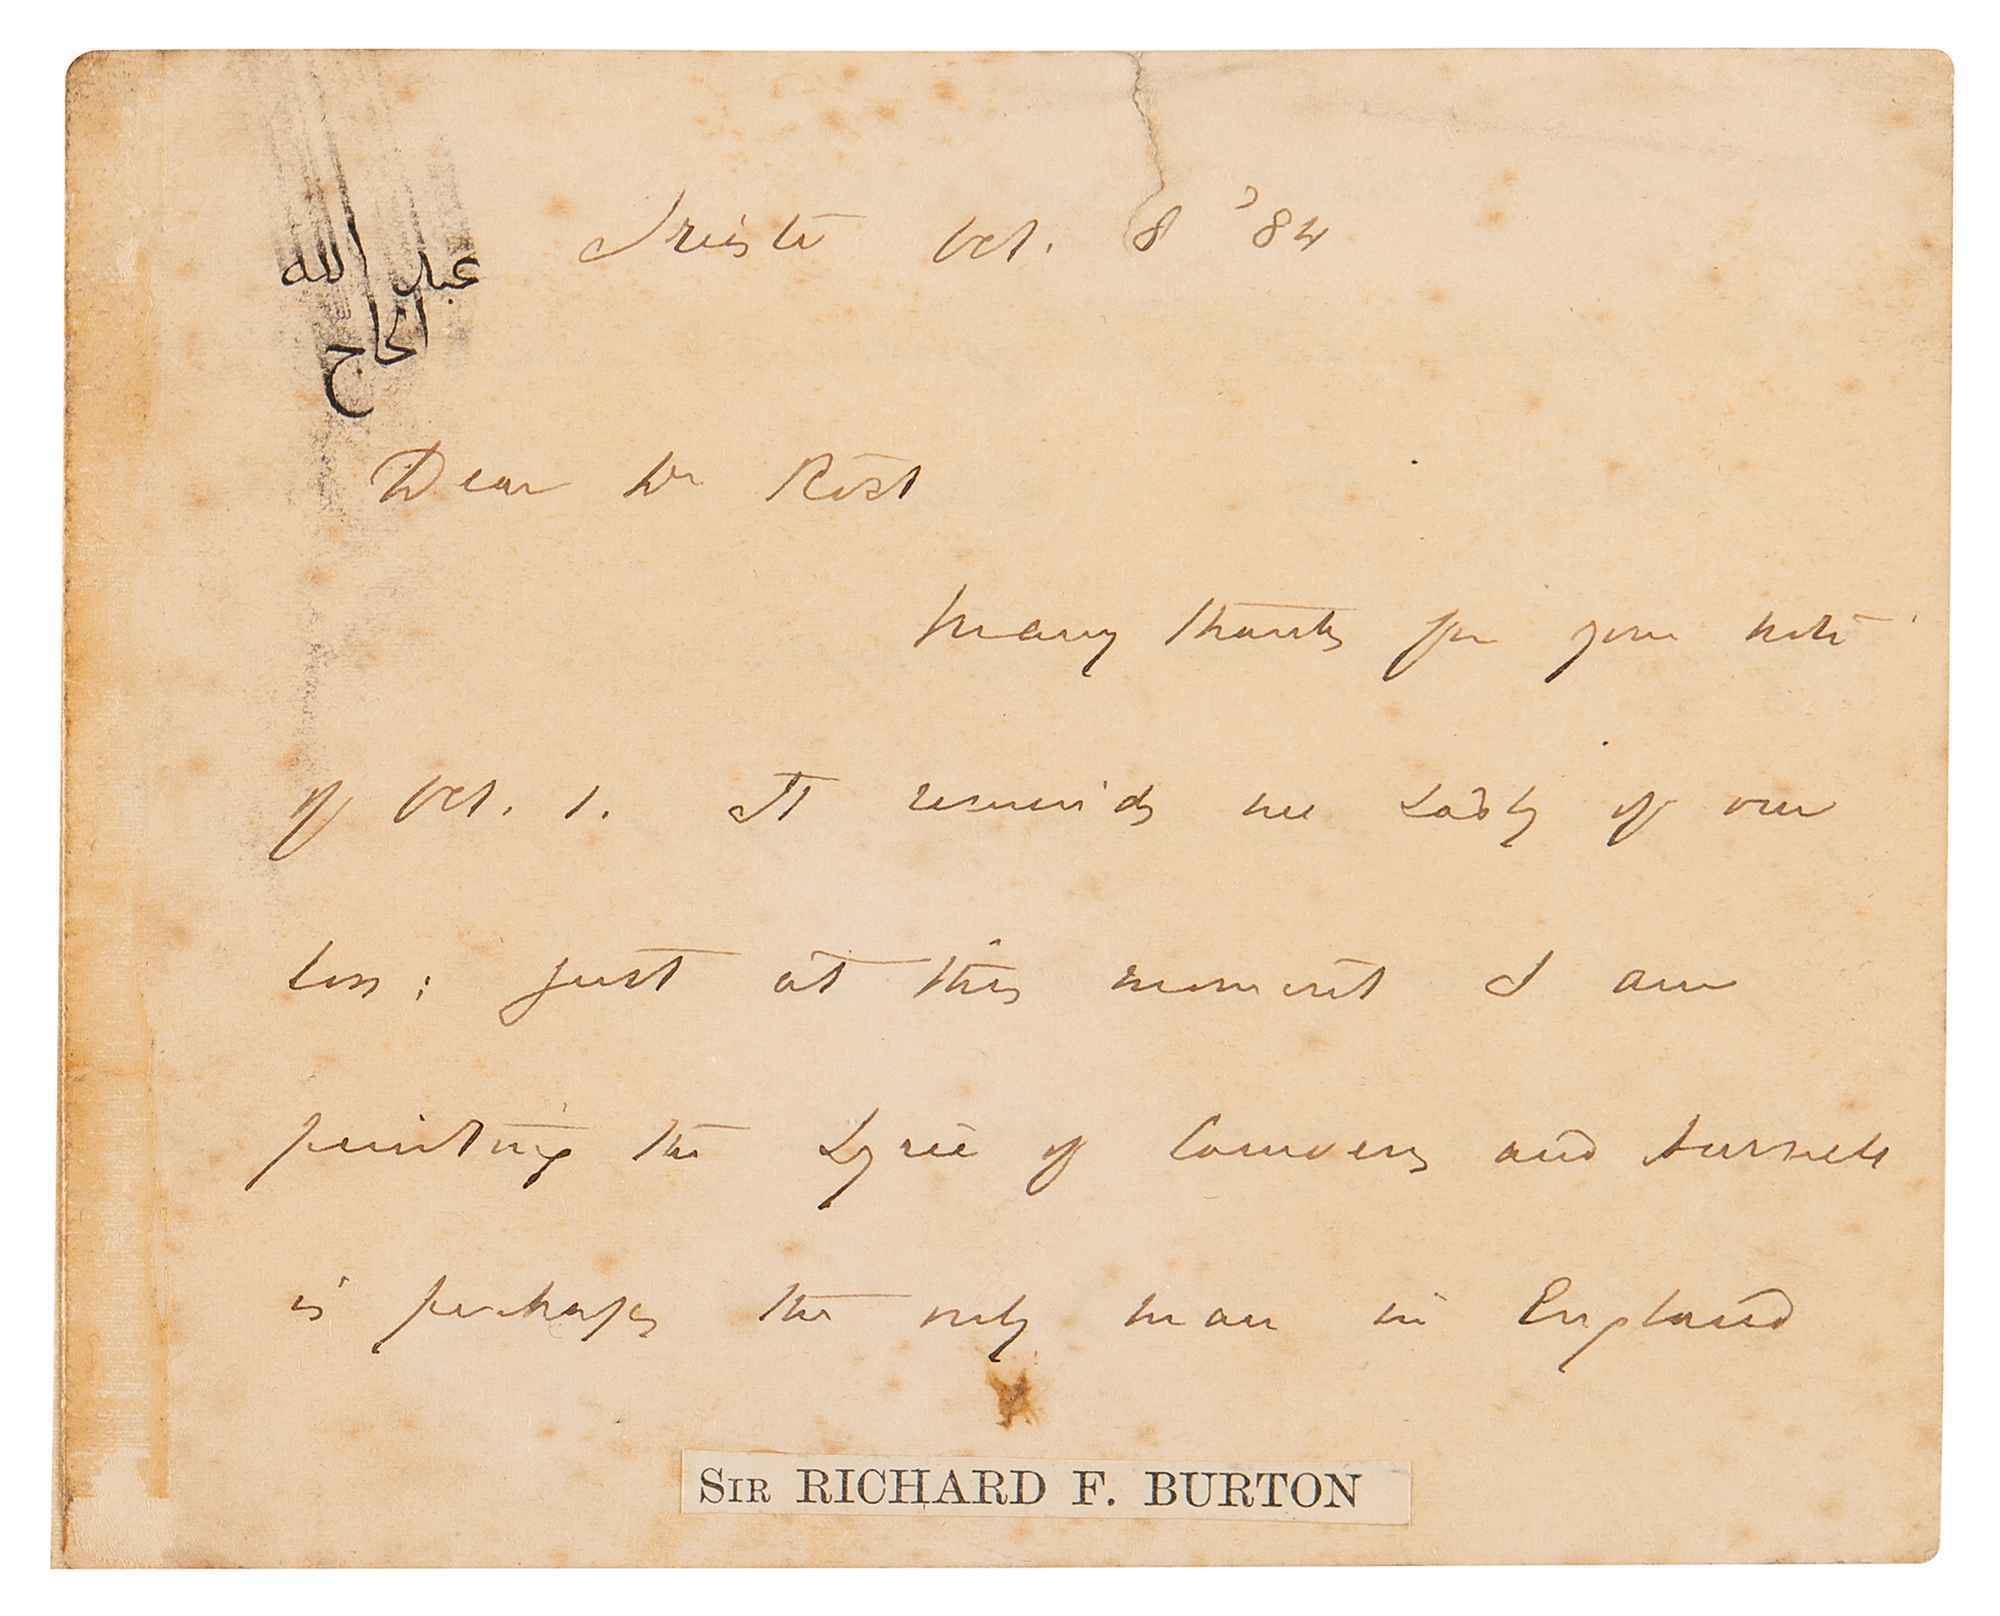 عبد الله
الحاج
Trieste Oct. 8 '84
Dear Dr Rost
Many thanks for your note
of Oct. 1. It reminds me sadly of our
loss; just at this moment I am
printing the Lyrics of Camoens and
is perhaps the only man in England
SIR RICHARD F. BURTON